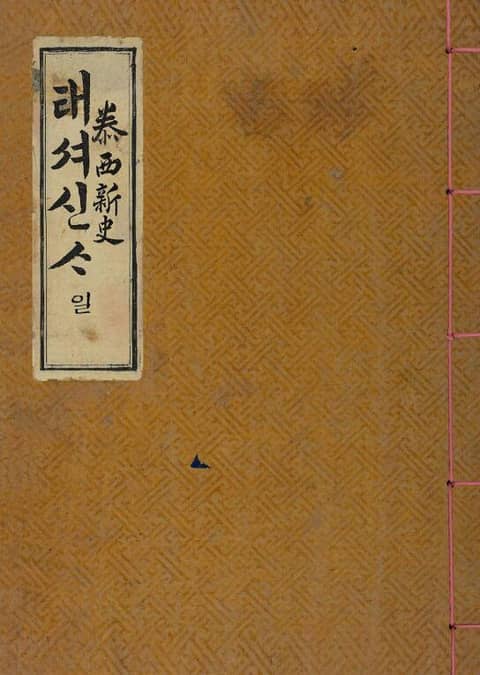 태셔신ᄉ
泰西新史
일